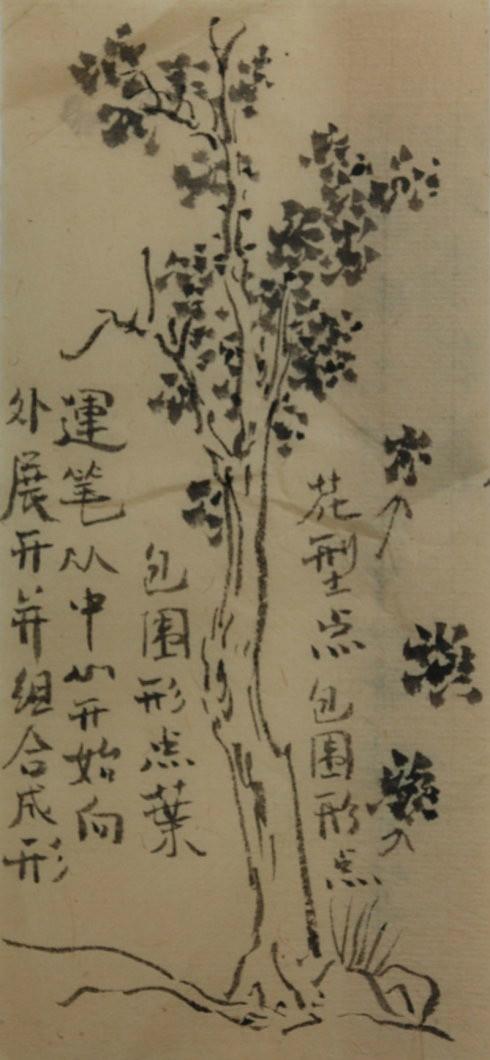 花型点包围形点
包围形点葉
運笔从中心开始向
外展开并组合成形